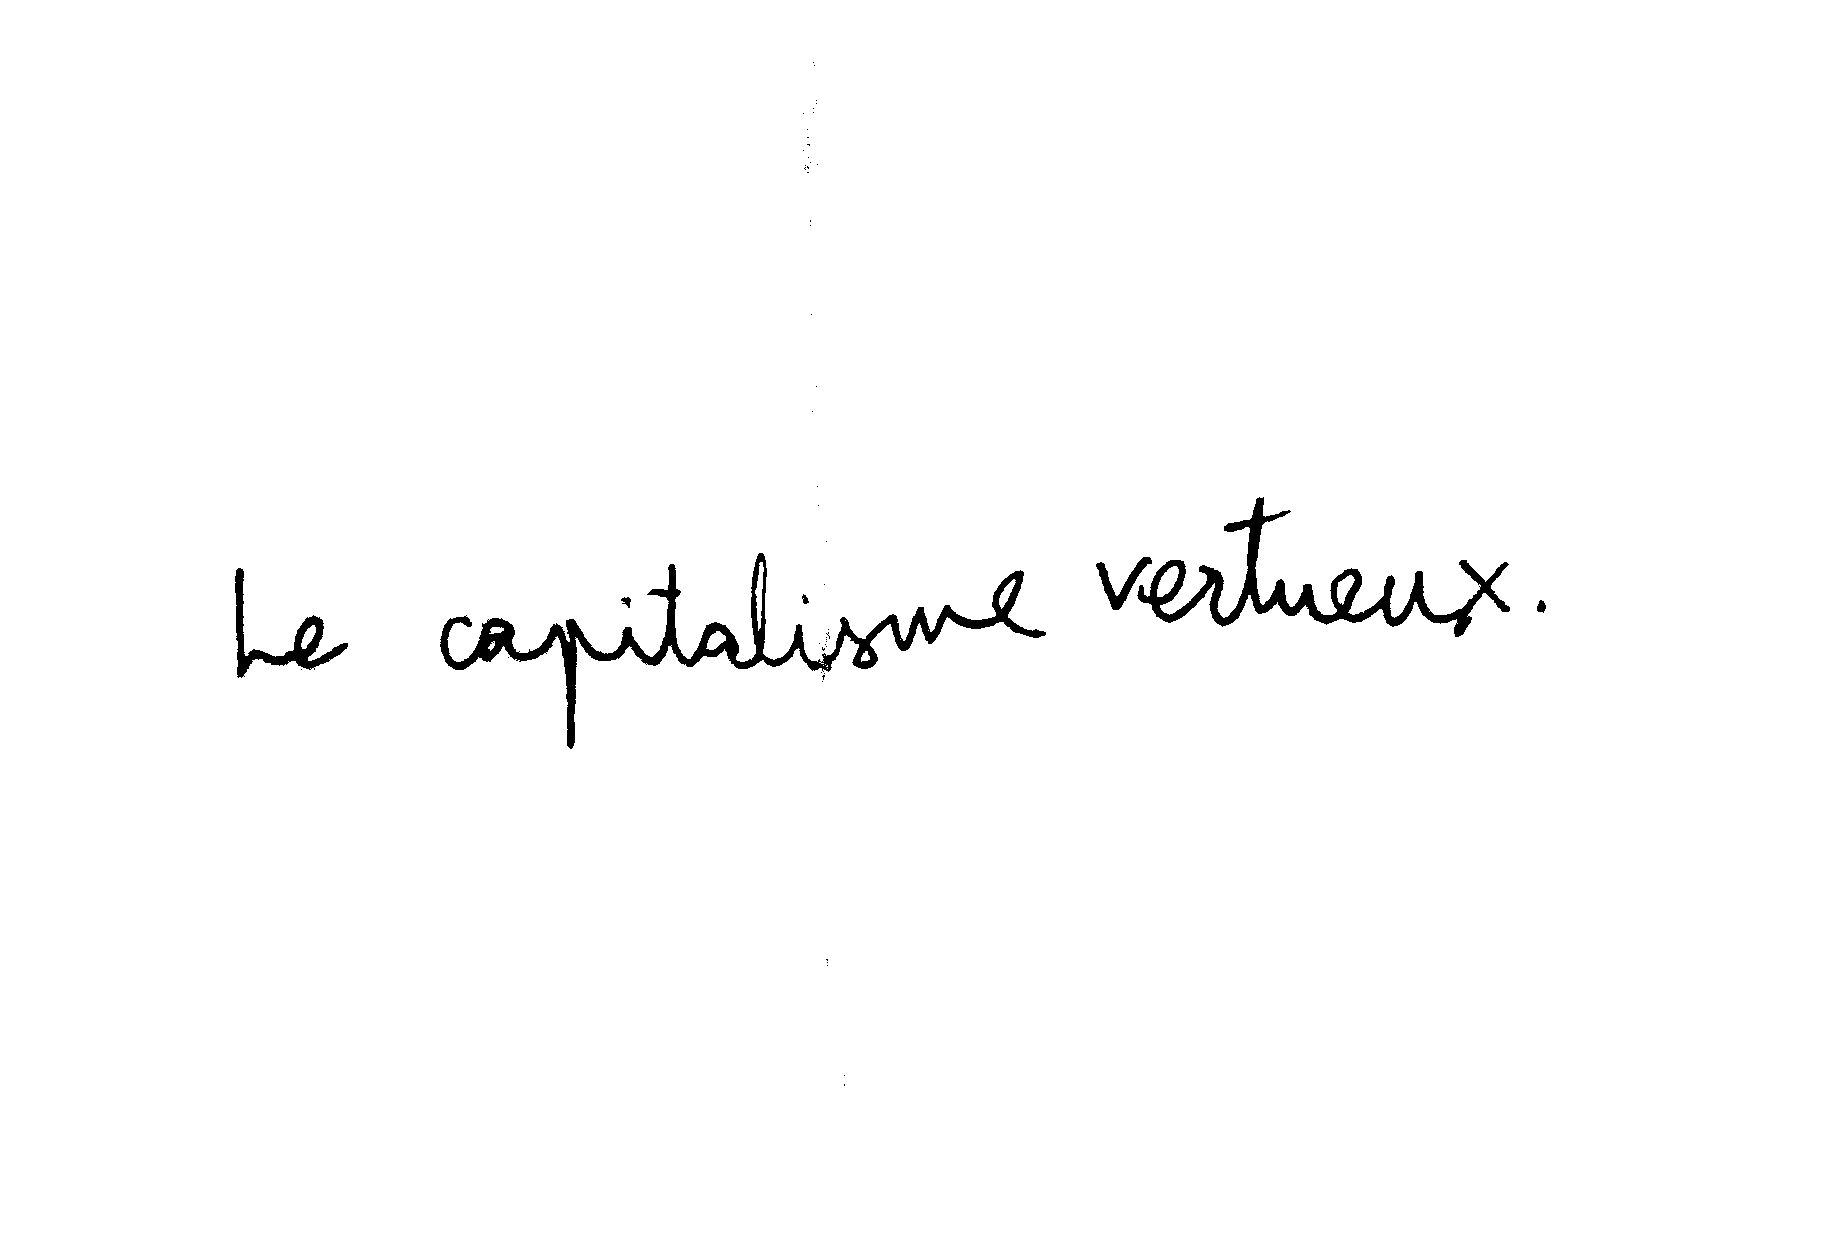 Le capitalisme vertueux.